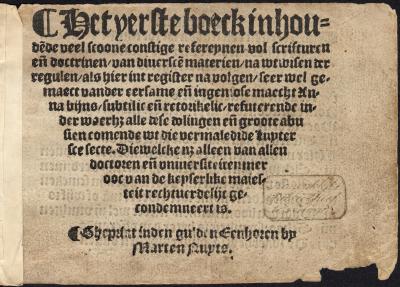 ¶ Het yerste boeck inhou-
dēde veel scoone constige refereynen vol scrifturen
eñ doctrinen / van diuerscē materien / na wtwisen der
regulen / als hier int register na volgen / seer wel ge-
maect vander eersame eñ ingeniose maecht An-
na bijns / subtilic eñ retorikelic / refuterende in-
der waerhz alle dese dolingen eñ groote abu
sien comende wt die vermaledide Luyter
sce secte. Diewelcke nz alleen van allen
doctoren eñ vniuersiteiten mer
ooc van de keyserlike maies-
teit rechtuerdelijc ge-
condemneert is.
¶ Gheprint inden gulden Eenhoren by
Marten Nuyts.